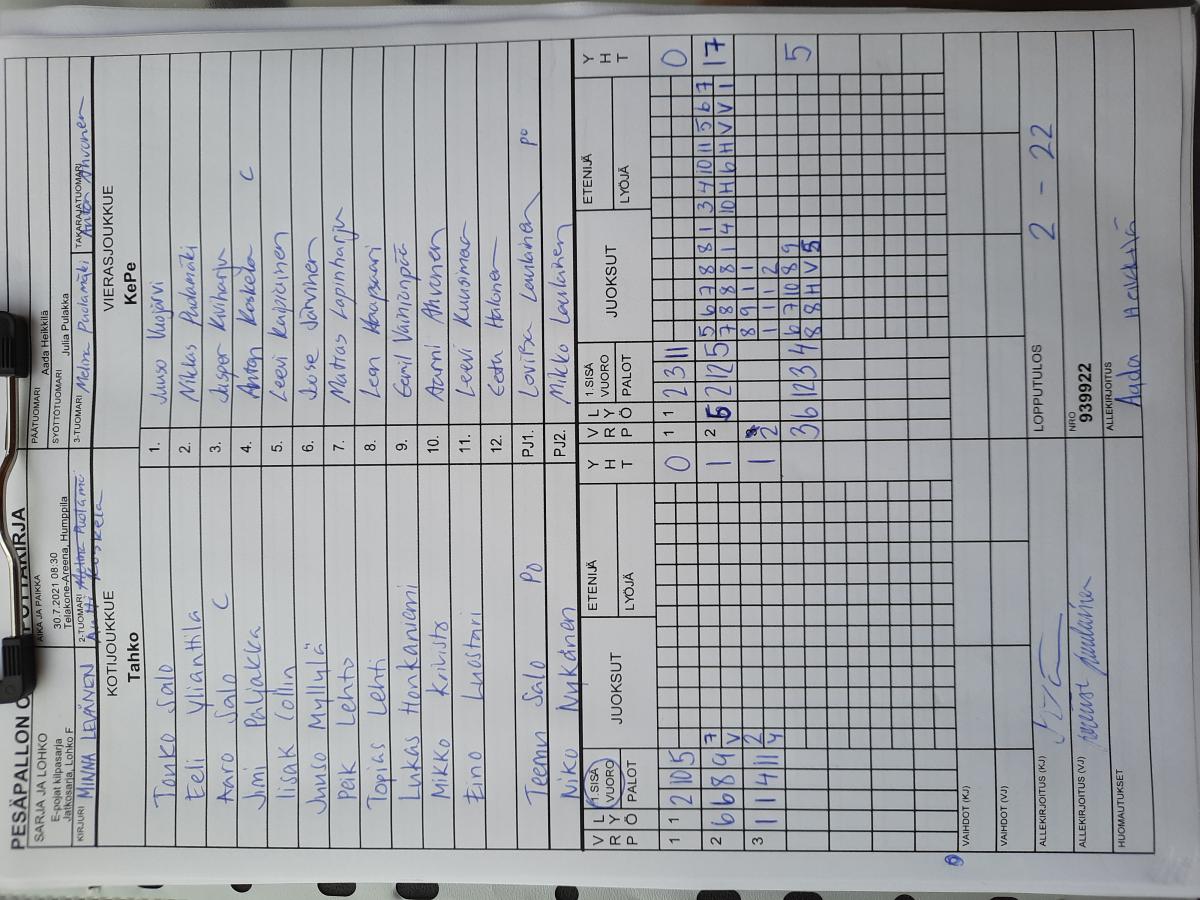 PESÄPALON
SARJA JA LOHKO
E-pojat kilpasarja
Jatkosarja, Lohko F
AIKA JA PAIKKA
30.7.2021 08:30
Telakone-Areena, Humppila
PÄÄTUOMARI
Aada Heikkilä
SYÖTTÖTUOMARI Julia Pulakka
KIRJURI MINNA LEVÄNEN
2-TUOMARI
3-TUOMARI Melina Puolamäki
TAKARAJATUOMARI Anton Ahvonen
KOTIJOUKKUE
Tahko
VIERASJOUKKUE
KePe
Tarko Salo 1. Juuso Vuojärvi
Eeli Ylianttila 2. Niklas Pudamäki
Aaro Salo C 3. Jasper Kiviharju
Jimi Paljakka 4. Anton Koskela C
Iisak Collin 5. Leevi Kaipiainen
Juuso Myllylä 6. Joose Järvinen
Pek Lehto 7. Matias Lapinharju
Topias Lehti 8. Leon Haapsaari
Lukas Honkaniemi 9. Eemil Vainionpää
Mikko Krivisto 10. Aarni Ahvonen
Eino Luostari 11. Leevi Kuusimaa
12. Eetu Halonen
Teemu Salo PO PJ1. Loviisa Laulainen po
Niko Nykänen PJ2. Mikko Laulainen
V R P L Y Ö 1.SISÄ VUORO PALOT JUOKSUT ETENIJÄ LYÖJÄ Y H T V R P L Y Ö 1.SISÄ VUORO PALOT JUOKSUT ETENIJÄ LYÖJÄ Y H T
1 1 2 10 5 0 1 1 2 3 11 0
2 6 6 8 9 7 1 2 5 2 12 5 5 6 7 8 8 1 3 4 10 11 5 6 7 17
V 7 8 8 8 1 4 10 H 6 H V V 1
3 1 1 4 11 2 1 2 8 9 1 1
4 1 1 1 2
3 6 12 3 4 6 7 10 8 9 5
8 8 H V 5
VAIHDOT (KJ)
VAIHDOT (VJ)
LOPPUTULOS
2 - 22
ALLEKIRJOITUS (KJ)
ALLEKIRJOITUS (VJ)
NRO
939922
HUOMAUTUKSET
ALLEKIRJOITUS
Aada Heikkilä